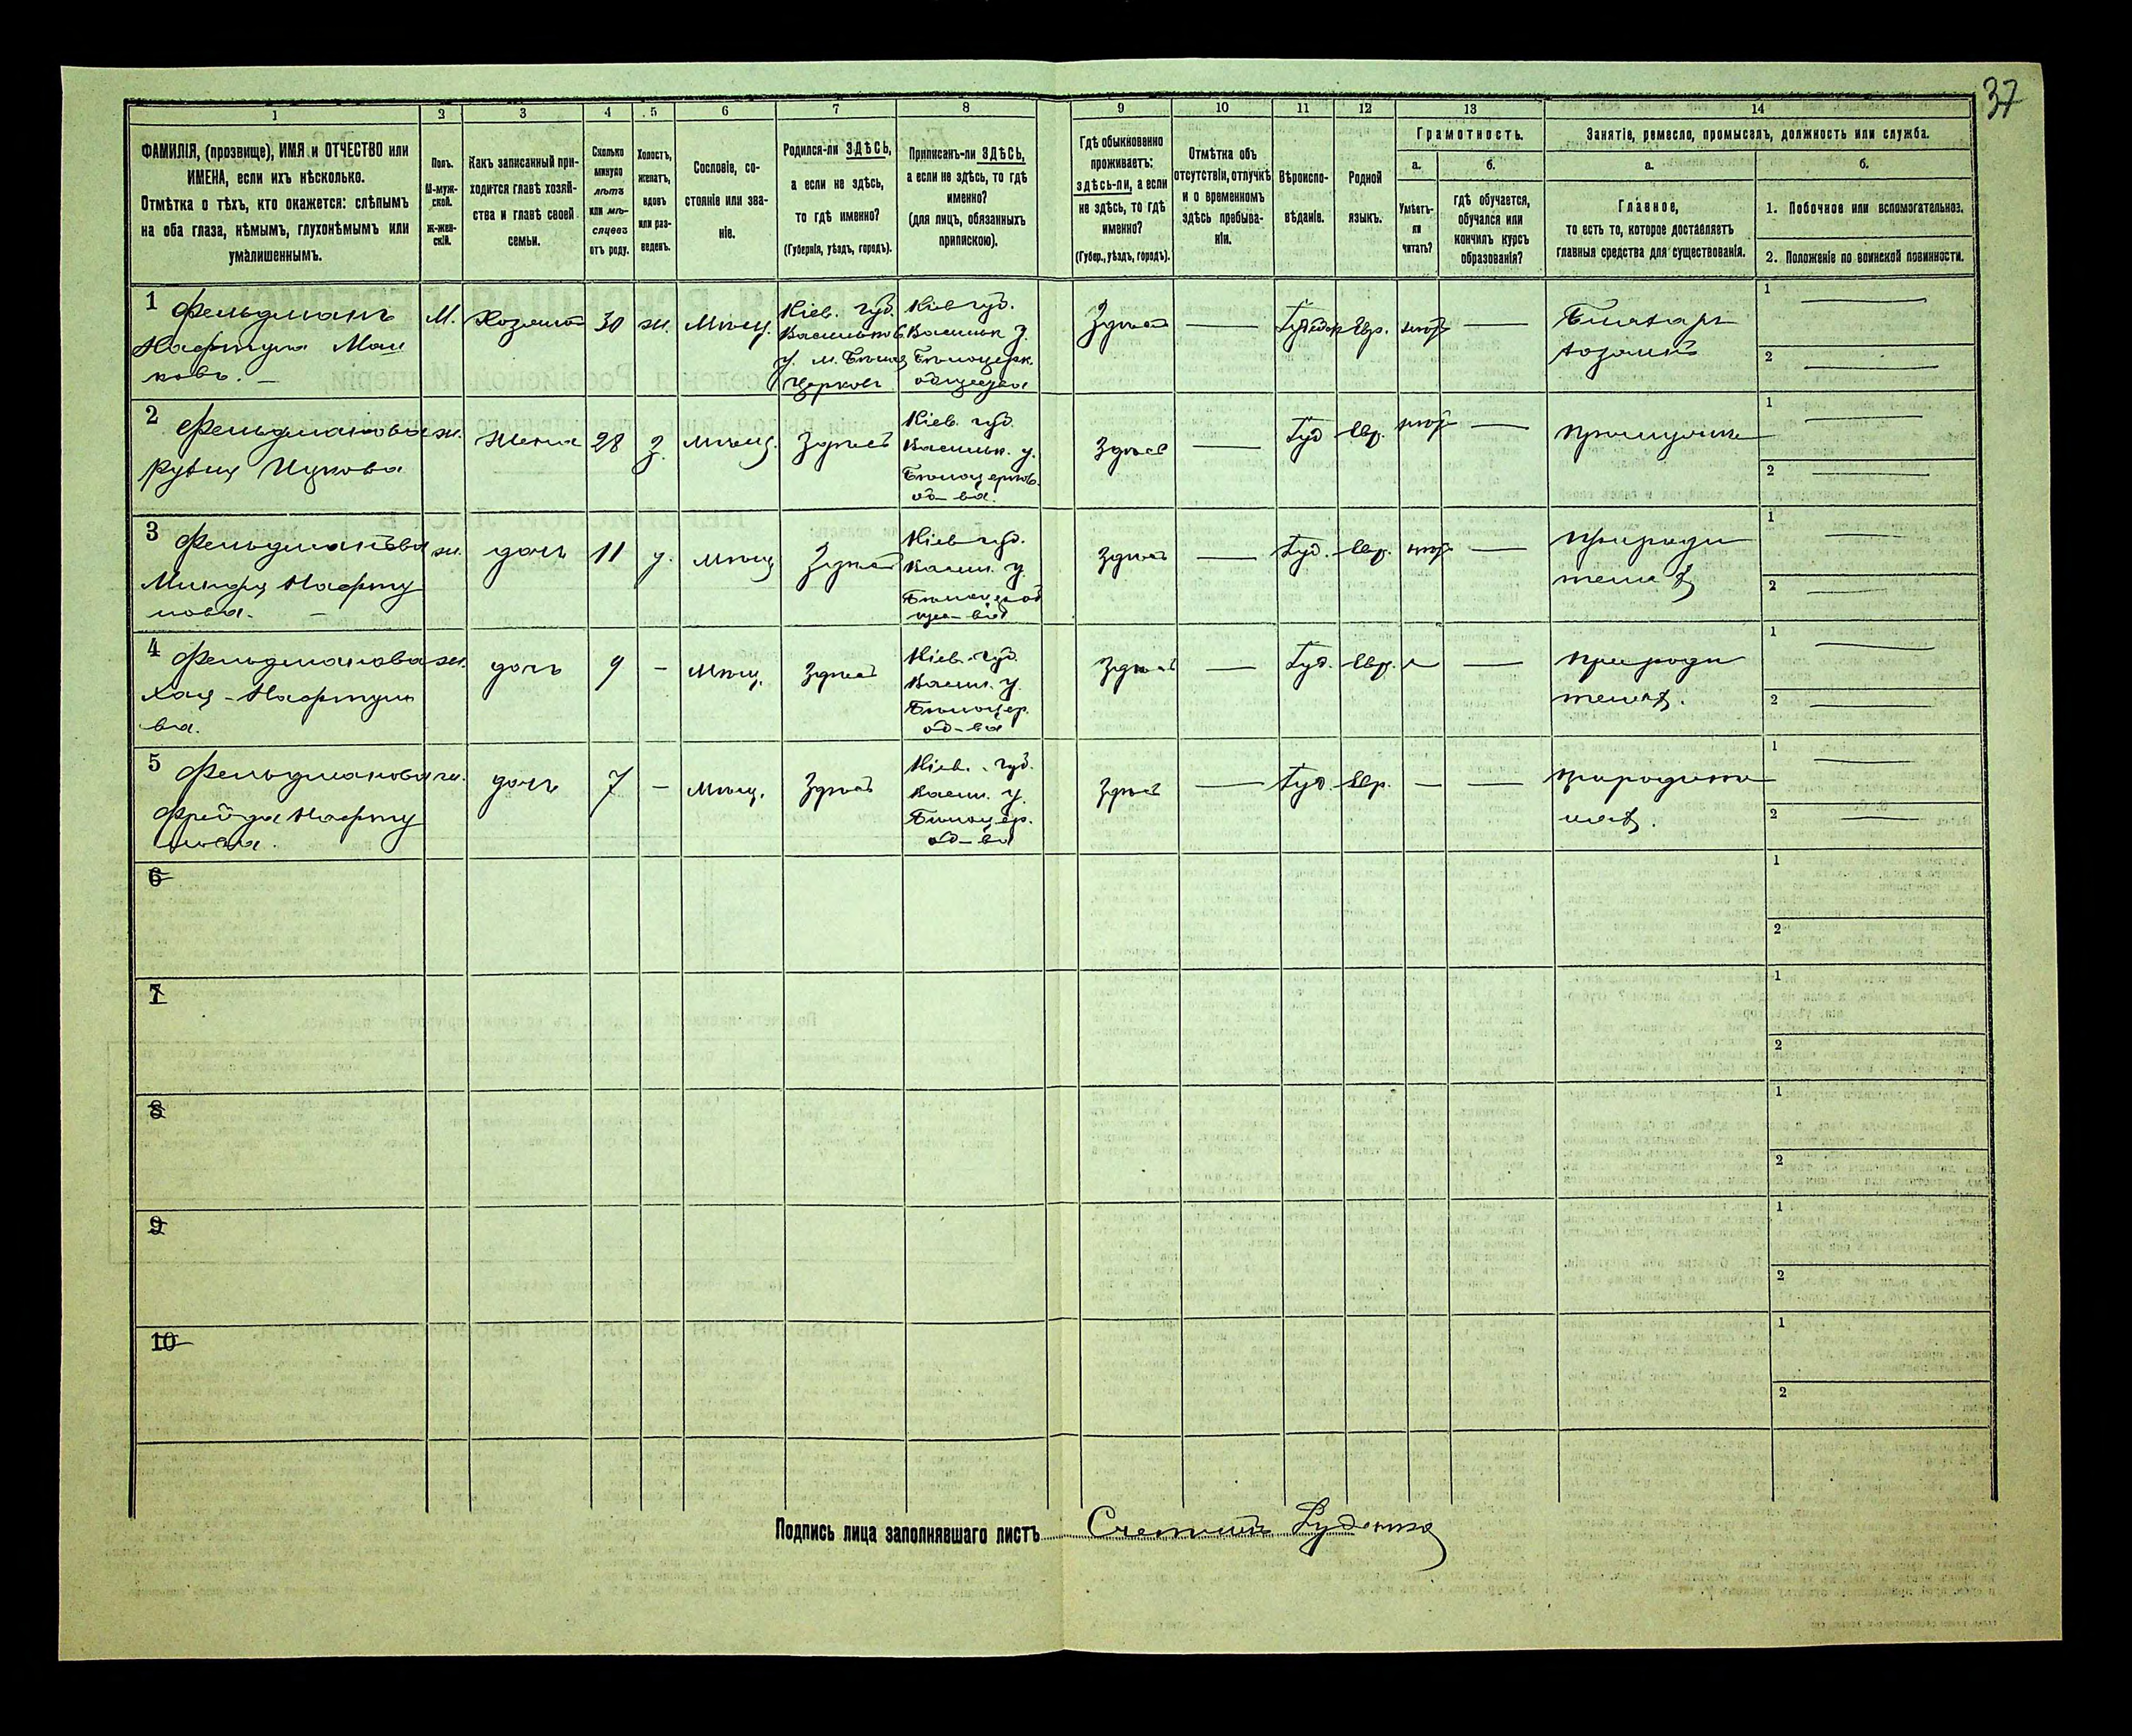 37
1 2 3 4 5 6 7 8 9 10 11 12 13 14
ФАМИЛІЯ, (прозвище), ИМЯ и ОТЧЕСТВО или
ИМЕНА, если ихъ нѣсколько.
Отмѣтка о тѣхъ, кто окажется: слѣпымъ
на оба глаза, нѣмымъ, глухонѣмымъ или
умалишеннымъ.
Полъ.
М-муж-
ской.
Ж-жен-
скій.
Какъ записанный при-
ходится главѣ хозяй-
ства и главѣ своей
семьи.
Сколько
минуло
лѣтъ
или мѣ-
сяцевъ
отъ роду.
Холостъ,
женатъ,
вдовъ
или раз-
веденъ.
Сословіе, со-
стояніе или зва-
ніе.
Родился-ли ЗДѢСЬ,
а если не здѣсь,
то гдѣ именно?
(Губернія, уѣздъ, городъ).
Приписанъ-ли ЗДѢСЬ,
а если не здѣсь, то гдѣ
именно?
(для лицъ, обязанныхъ
припискою).
Гдѣ обыкновенно
проживаетъ:
здѣсь-ли, а если
не здѣсь, то гдѣ
именно?
(Губер., уѣздъ, городъ).
Отмѣтка объ
отсутствіи, отлучкѣ
и о временномъ
здѣсь пребыва-
ніи.
Вѣроиспо-
вѣданіе.
Родной
языкъ.
Грамотность.
а.
Умѣетъ-
ли
читать?
б.
гдѣ обучается,
обучался или
кончилъ курсъ
образованія?
Занятіе, ремесло, промыселъ, должность или служба.
а.
Главное,
то есть то, которое доставляетъ
главныя средства для существованія.
б.
1. Побочное или вспомогательное.
2. Положеніе по воинской повинности.
1 Фельдманъ
Нафтула
М. Хозяинъ 30 ж. Мѣщ.
Кіев. губ.
Васильков.
у. м. Бѣлая
Церковь
Кіев губ.
Васильк у.
Бѣлоцерк.
общества
Здѣсь — Евр. —
хозяинъ
1 —
2 —
2 Фельдманова
ж. Жена 28 з. мѣщ. Здѣсь
Кіев. губ.
Васильк. у.
Бѣлоцерков.
об-ва.
Здѣсь — Іуд Евр. —
1 —
2 —
3 Фельдманова
Нафту
лова. —
ж. дочь 11 мѣщ Здѣсь
Кіев губ.
Васил. у.
Здѣсь — Іуд. Евр. —
при роди
теляхъ
1 —
2 —
4 Фельдманова
Хая - Нафтуло
ва.
ж. дочь 9 - мѣщ. здѣсь
Кіев. губ.
Васил. у.
Бѣлоцер.
об-ва
здѣсь — Іуд. Евр. —
при роди
теляхъ.
1 —
2 —
5 Фельдманова
Фрейда Нафту
лова.
ж. дочь 7 - мѣщ. Здѣсь
Кіев. губ.
Васил. у.
Бѣлоцер.
об-ва
Здѣсь — Іуд. Евр. — —
при родите
ляхъ.
1 —
2 —
6
1
2
7
1
2
8
1
2
9
1
2
10
1
2
Подпись лица заполнявшаго листъ Счетчикъ